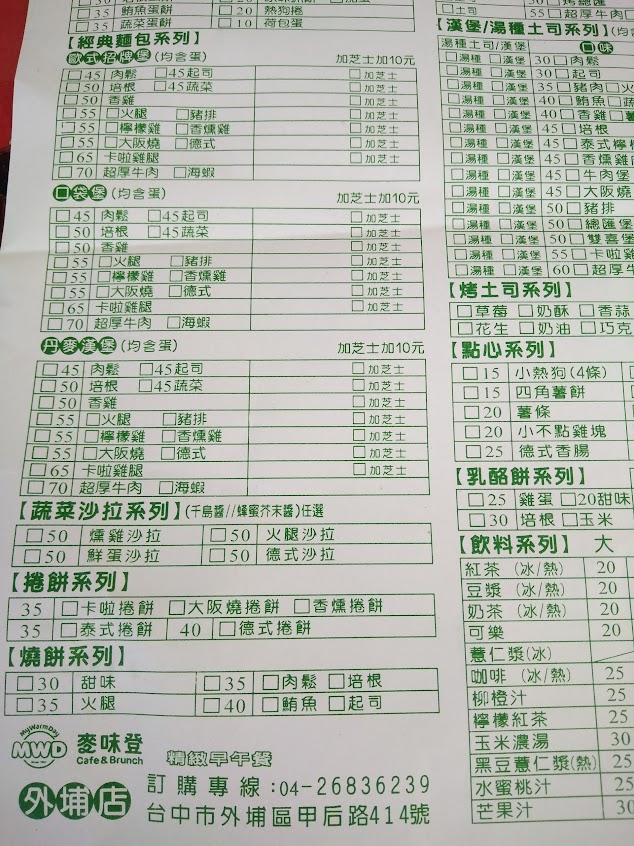 35 鮪魚蛋餅 20 熱狗捲
35 蔬菜蛋餅 10 荷包蛋
【經典麵包系列】
歐式招牌堡(均含蛋) 加芝士加10元
45 肉鬆 45起司 加芝士
50 培根 45蔬菜 加芝士
50 香雞 加芝士
55 火腿 豬排 加芝士
55 檸檬雞 香燻雞 加芝士
55 大阪燒 德式 加芝士
65 卡啦雞腿 加芝士
70 超厚牛肉 海蝦
口袋堡(均含蛋) 加芝士加10元
45 肉鬆 45起司 加芝士
50 培根 45蔬菜 加芝士
50 香雞 加芝士
55 火腿 豬排 加芝士
55 檸檬雞 香燻雞 加芝士
55 大阪燒 德式 加芝士
65 卡啦雞腿 加芝士
70 超厚牛肉 海蝦
丹麥漢堡(均含蛋) 加芝士加10元
45 肉鬆 45起司 加芝士
50 培根 45蔬菜 加芝士
50 香雞 加芝士
55 火腿 豬排 加芝士
55 檸檬雞 香燻雞 加芝士
55 大阪燒 德式 加芝士
65 卡啦雞腿 加芝士
70 超厚牛肉 海蝦
【蔬菜沙拉系列】(千島醬//蜂蜜芥末醬)任選
50 燻雞沙拉 50 火腿沙拉
50 鮮蛋沙拉 50 德式沙拉
【捲餅系列】
35 卡啦捲餅 大阪燒捲餅 香燻捲餅
35 泰式捲餅 40 德式捲餅
【燒餅系列】
30 甜味 35 肉鬆 培根
35 火腿 40 鮪魚 起司
MyWarmDay
MWD
麥味登
Cafe & Brunch
精緻早午餐
外埔店
訂購專線:04-26836239
台中市外埔區甲后路414號
土司 55 超厚牛肉
【漢堡/湯種土司系列】
湯種土司/漢堡 口味
湯種 漢堡 30 肉鬆
湯種 漢堡 30 起司
湯種 漢堡 35 豬肉
湯種 漢堡 40 鮪魚
湯種 漢堡 40 香雞
湯種 漢堡 45 培根
湯種 漢堡 45 泰式
湯種 漢堡 45 香燻雞
湯種 漢堡 45 牛肉堡
湯種 漢堡 45 大阪燒
湯種 漢堡 50 豬排
湯種 漢堡 50 總匯堡
湯種 漢堡 50 雙喜堡
湯種 漢堡 55 卡啦
湯種 漢堡 60 超厚牛
【烤土司系列】
草莓 奶酥 香蒜
花生 奶油 巧克
【點心系列】
15 小熱狗(4條)
15 四角薯餅
20 薯條
20 小不點雞塊
25 德式香腸
【乳酪餅系列】
25 雞蛋 20甜味
30 培根 玉米
【飲料系列】 大
紅茶 (冰/熱) 20
豆漿 (冰/熱) 20
奶茶 (冰/熱) 20
可樂 20
薏仁漿(冰)
咖啡 (冰/熱) 25
柳橙汁 25
檸檬紅茶 25
玉米濃湯 30
黑豆薏仁漿(熱) 25
水蜜桃汁 25
芒果汁 30